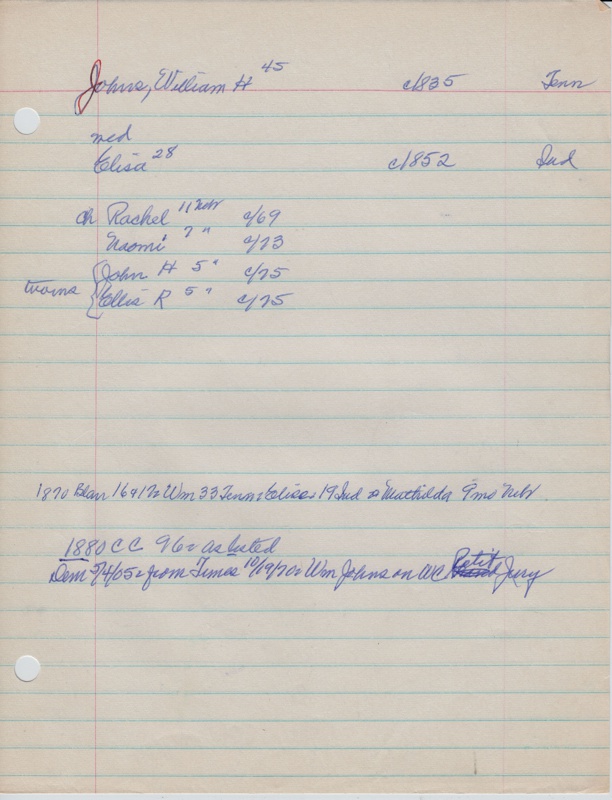 Johns, William H 45 c/1835 Tenn
med
Elisa 28 c/1852 Ind
ch Rachel 11 Nebr c/69
Naomi 7 " c/73
twins John H 5 " c/75
Ellis R 5 " c/75
1870 Blair 16&17= Wm 33 Tenn: Elisa 19 Ind Mattilda 9 mo Nebr
1880 CC 96= as listed
Dem 5/4/05= from Times 10/19/70= Wm Johns on WC Petit Jury